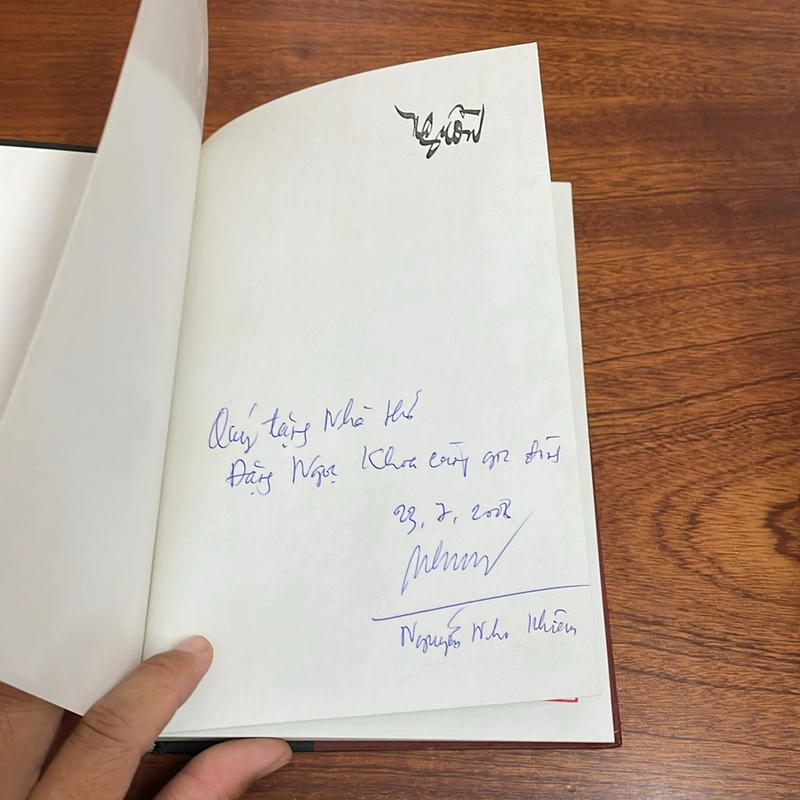 Nguồn
Quý tặng Nhà thơ
Đặng Ngọc Khoa cùng gia đình
23.7.2008
Nguyễn Nho Khiêm